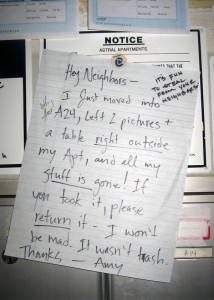 NOTICE
AGTRAL APARTMENTS
THAT THE
IT'S FUN
TO STEAL
FROM YOUR
NEIGHBORS!
Hey Neighbors-
I Just moved into
A24, Left 2 pictures +
a table right outside
my Apt, and all my
stuff is gone! If
you took it, please
return it - I won't
be mad. It wasn't trash.
Thanks - Amy